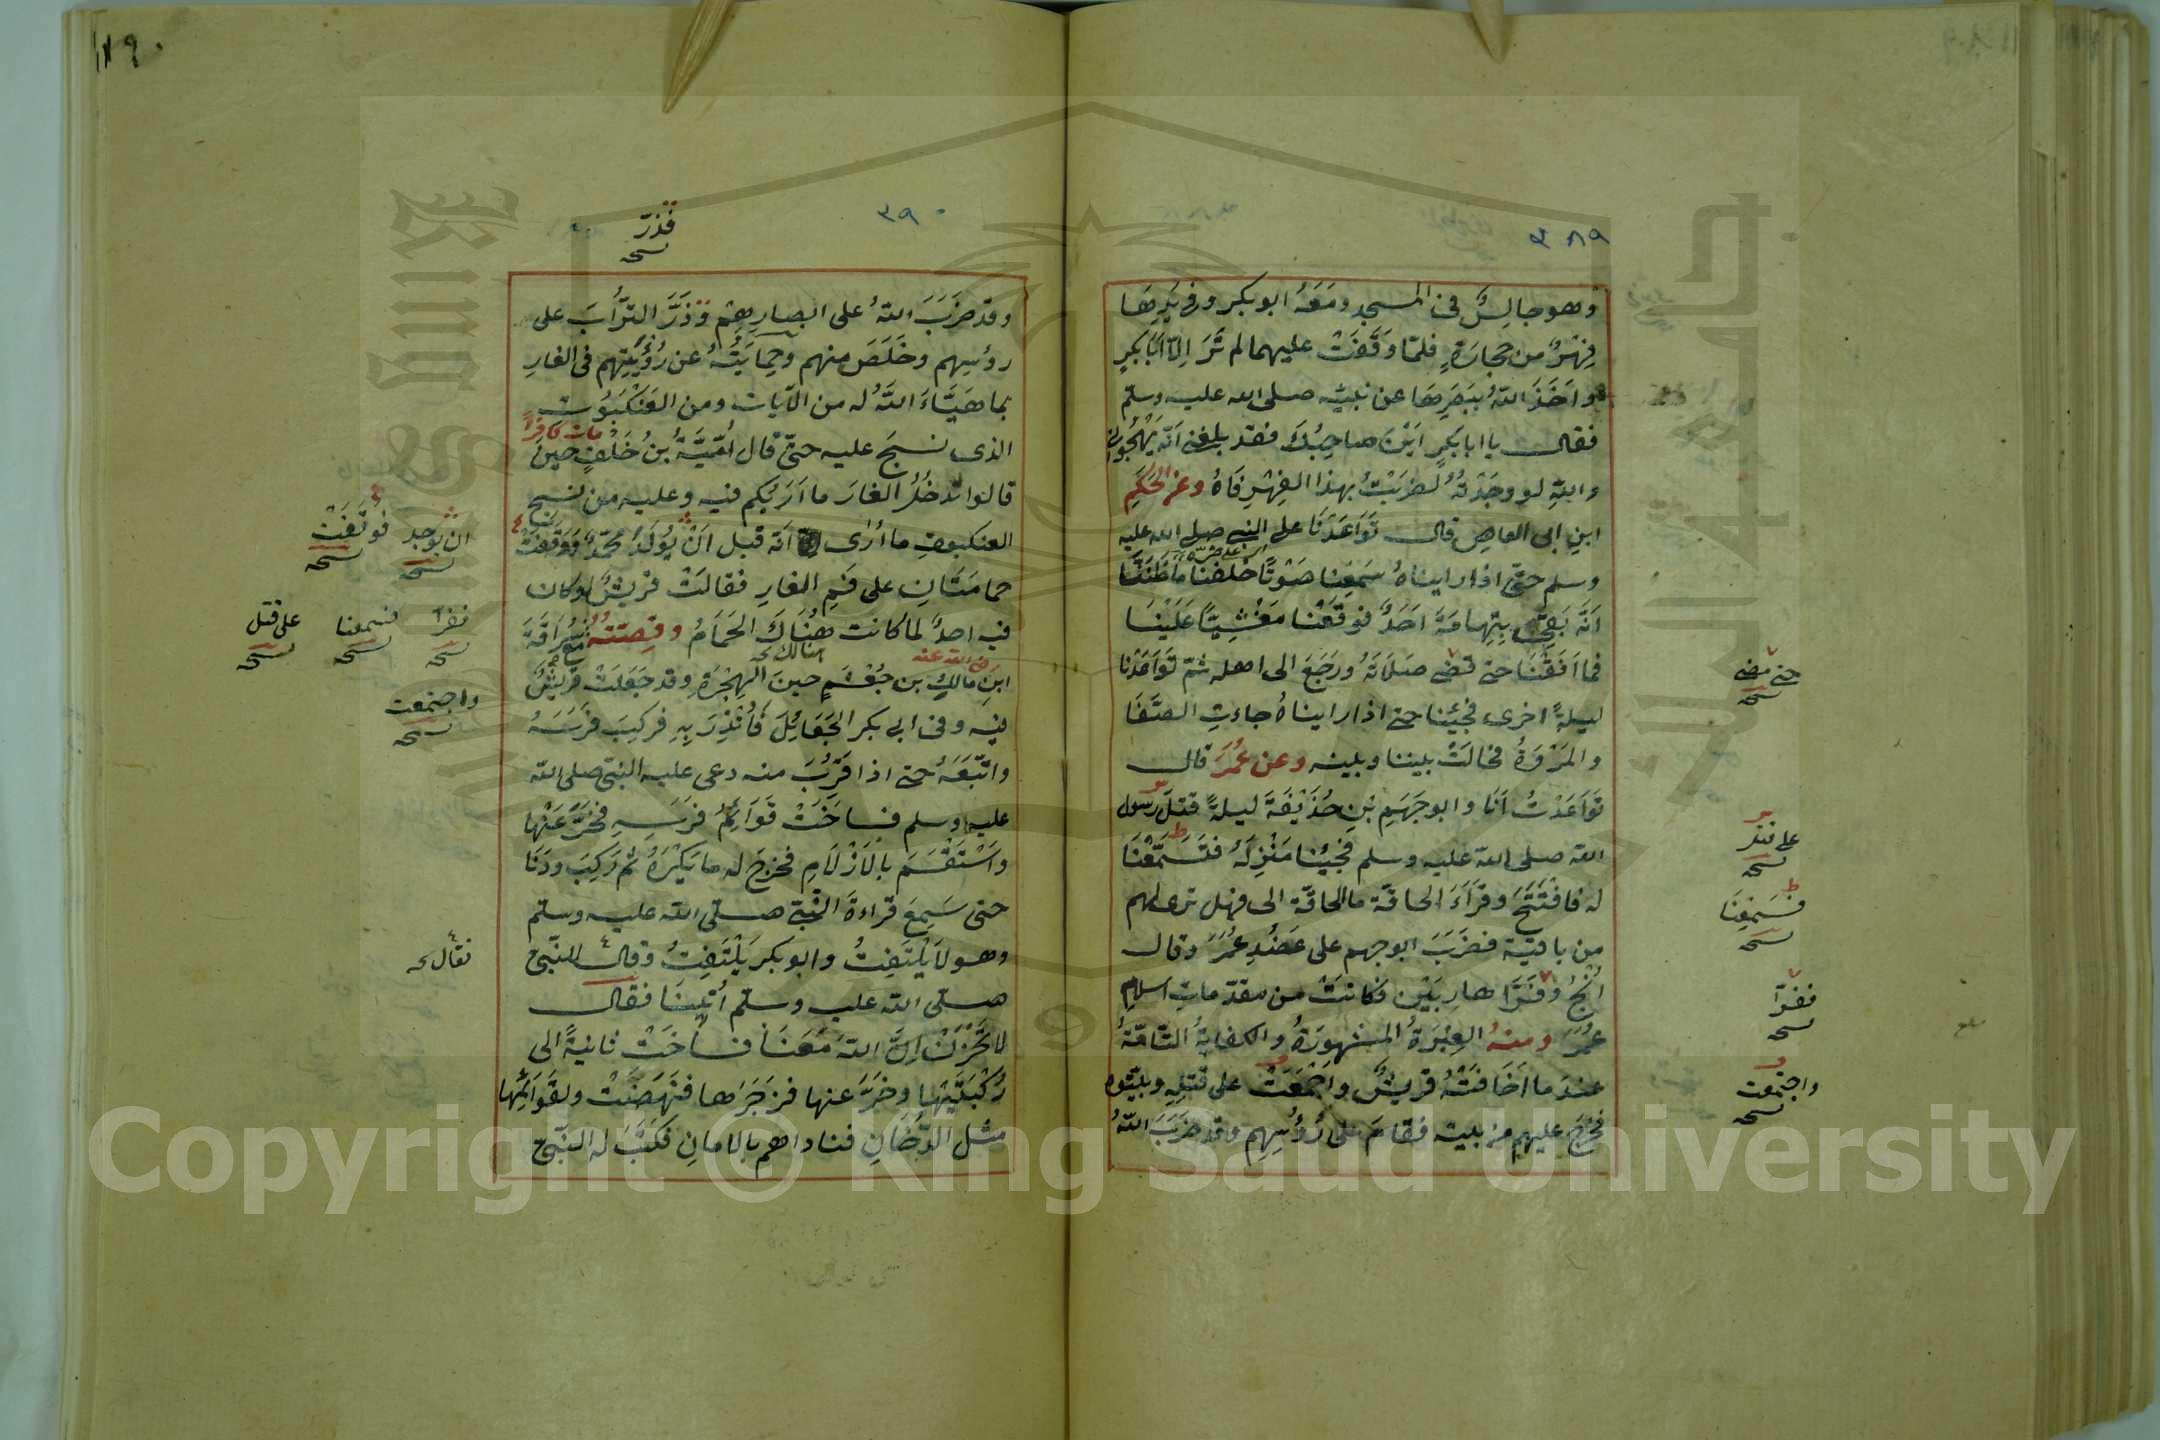 ٣٨٩
وهو جالِسٌ فى المسجد ومَعَهُ ابو بكر وفى يَدِهَا
فِهْرٌ من حِجَارَةٍ فلمّا وَقَفَتْ عليهما لم تَرَ اِلّا اَبَا بَكرٍ
واَخَذَ اللهُ بِبَصَرِهَا عن نبيّه صلى الله عليه وسلّم
فقالت يا ابا بَكرٍ اَيْنَ صاحِبُكَ فقد بلغنى اَنّه يَهْجُونى
واللهِ لو وجَدْتُهُ لضرَبْتُ بهذا الفِهْرِ فَاهُ وعن الحَكَمِ
ابنِ ابى العاصِ قال تَوَاعَدْنَا على النبى صلى الله عليه
وسلم حتّى اذا رايناهُ سَمِعْنا صَوْتًا خَلْفَنَا ما ظَنَنَّا
اَنَّه بَقِىَ بِتِهامَةَ اَحَدٌ فوقَعْنا مَغْشِيًّا عَلَيْنَا
فما اَفَقْنَا حتى قضى صَلَاتَهُ ورَجَعَ الى اهله ثمّ تَوَاعَدْنا
ليلةً اخرى فجِئنا حتى اذا رايناهُ جاءتِ الصَّفَا
والمَرْوَةُ فحَالَتْ بيننا وبينه وعن عُمَرَ قال
تَوَاعَدْتُ اَنَا وابو جَهْمِ بْنِ حُذَيْفَةَ ليلةً قتلَ رسول
الله صلى الله عليه وسلم فجِئْنا مَنْزِلَهُ فتَسَمَّعْنَا
له فافْتَتَحَ وقَرَاَءَ الحاقّة ما الحاقّة الى فهل ترى لهم
من باقية فضَرَبَ ابو جهم على عَضُدِ عُمَرَ وقال
اُنْجُ وفَرَّا هارِبَيْنِ فكانتْ من مقدّماتِ اسلامِ
عُمَرَ ومنهُ العِبْرَةُ المشهورَةُ والكفايةُ التّامّةُ
عندَ ما اَخَافَتْهُ قريشٌ واَجْمَعَتْ على قَتلِهِ وبيّتوه
فخَرَجَ عليهم من بيته فقامَ على رُؤُسِهِم وقد ضَرَبَ اللهُ
حتى مضى
نسخه
على نفر
نسخه
فسَمِعْنَا
نسخه
ففرّا
نسخه
واجتمعت
نسخه
١٩٠
٣٩٠
فذرّ
نسخه
وقد ضَرَبَ اللهُ على ابصارِهِمْ وذَرَّ التُّرَابَ على
رؤسِهِم وخَلَصَ منهم وحِمايَتُهُ عن رُؤْيَتِهِم فى الغارِ
بما هَيَّاءَ اللهُ له من الآيات ومن العَنْكَبُوت
مات كافرًا
الذى نسَجَ عليه حتّى قال اُمَيَّةُ بنُ خَلَفٍ حينَ
قالوا نَدخُلُ الغارَ ما اَرَبُكم فيه وعليه من نسج
العنكبوتِ ما اُرٰى انّه قبل اَنْ يُولَدَ محمّدٌ ووَقَفَتْ
حمامَتَانِ على فَمِ الغارِ فقالَتْ قريشٌ لو كان
فيه احدٌ لما كانت هُنَاكَ الحَمَامُ وقِصّتُهُ مع سُرَاقَةَ
هنالك نسخه
رضى الله عنه
ابنِ مالكٍ بن جُعْشُمٍ حينَ الهِجْرَةِ وقد جَعَلَتْ قريشٌ
فيه وفى ابى بكر الجَعَائِلَ فَاُنْذِرَ بِهِ فركِبَ فرَسَهُ
واتّبَعَهُ حتى اذا قَرُبَ منه دعى عليه النبىّ صلى الله
عليه وسلم فساخَتْ قَوَائِمُ فرَسِهِ فخَرَّ عَنْها
واسْتَقْسَمَ بالاَزْلَامِ فخرَجَ له ما يَكْرَهُ ثم رَكِبَ ودَنَا
حتى سَمِعَ قراءةَ النّبىّ صلى الله عليه وسلم
وهو لَا يَلْتَفِتُ وابو بَكر يَلْتَفِتُ وقال للنّبىّ
صلى الله عليه وسلم اُتِينَا فقال
لا تَحْزَنْ اِنَّ اللهَ مَعَنَا فساخَتْ ثانيةً الى
رُكْبَتَيْها وخَرَّ عنها فزجَرَها فنَهَضَتْ ولقَوَائِمِها
مثل الدُّخَانِ فناداهم بالامانِ فكتَبَ له النّبىّ
فوَقَفَتْ
نسخه
ان يوجد
نسخه
على قتل
نسخه
فسمعنا
نسخه
نفرًا
نسخه
واجتمعت
نسخه
فقال نسخه
Copyright © King Saud University